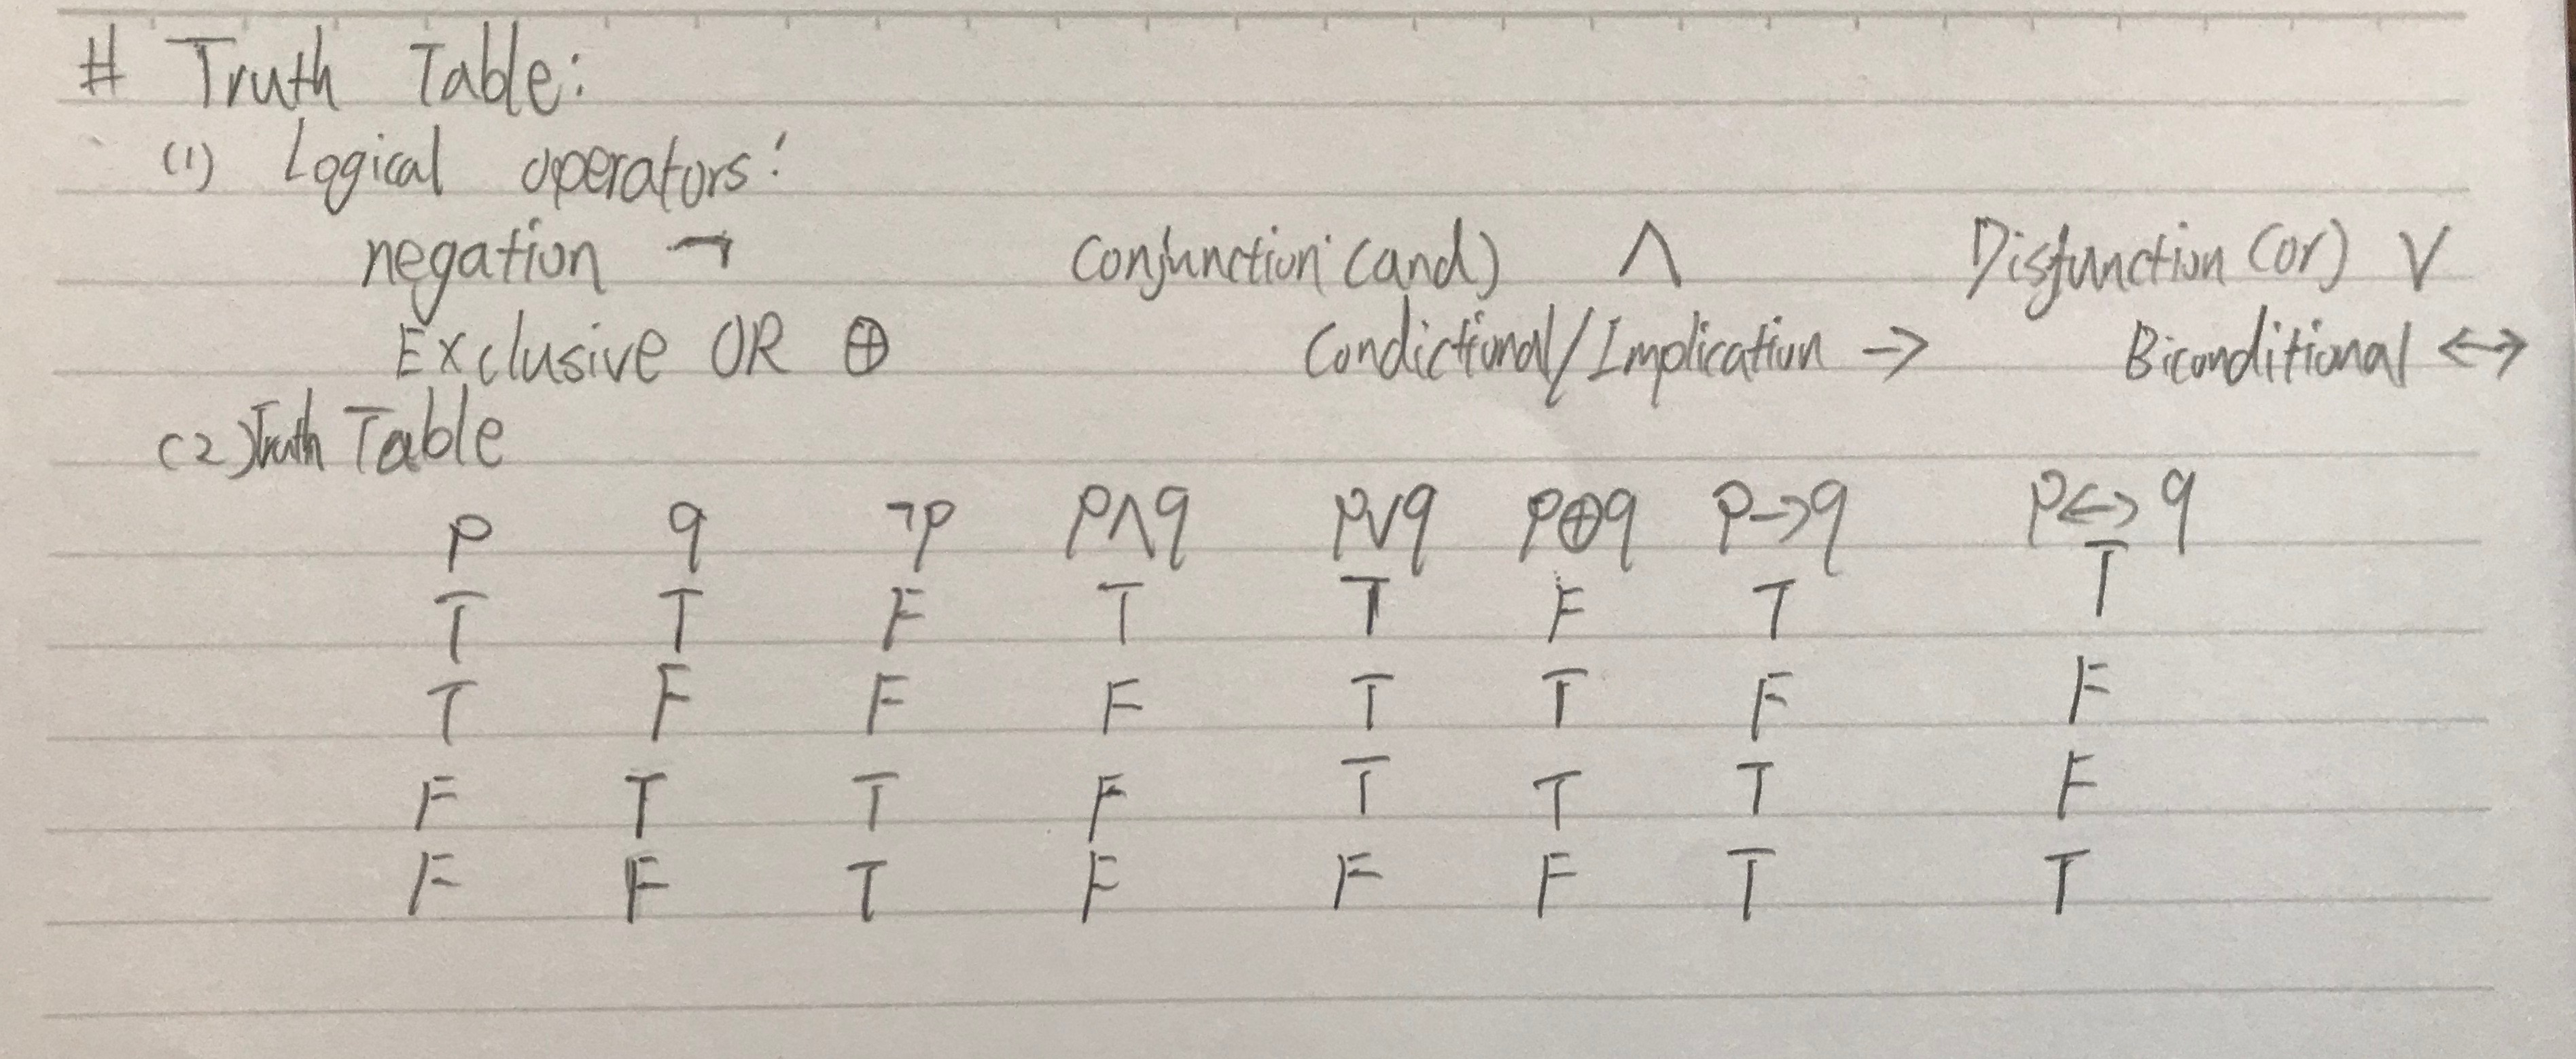 # Truth Table:
(1) Logical operators:
negation ¬ Conjunction (and) ∧ Disjunction (or) ∨
Exclusive OR ⊕ Condictional/Implication → Biconditional ↔
(2) Truth Table
p q ¬p p∧q p∨q p⊕q p→q p↔q
T T F T T F T T
T F F F T T F F
F T T F T T T F
F F T F F F T T